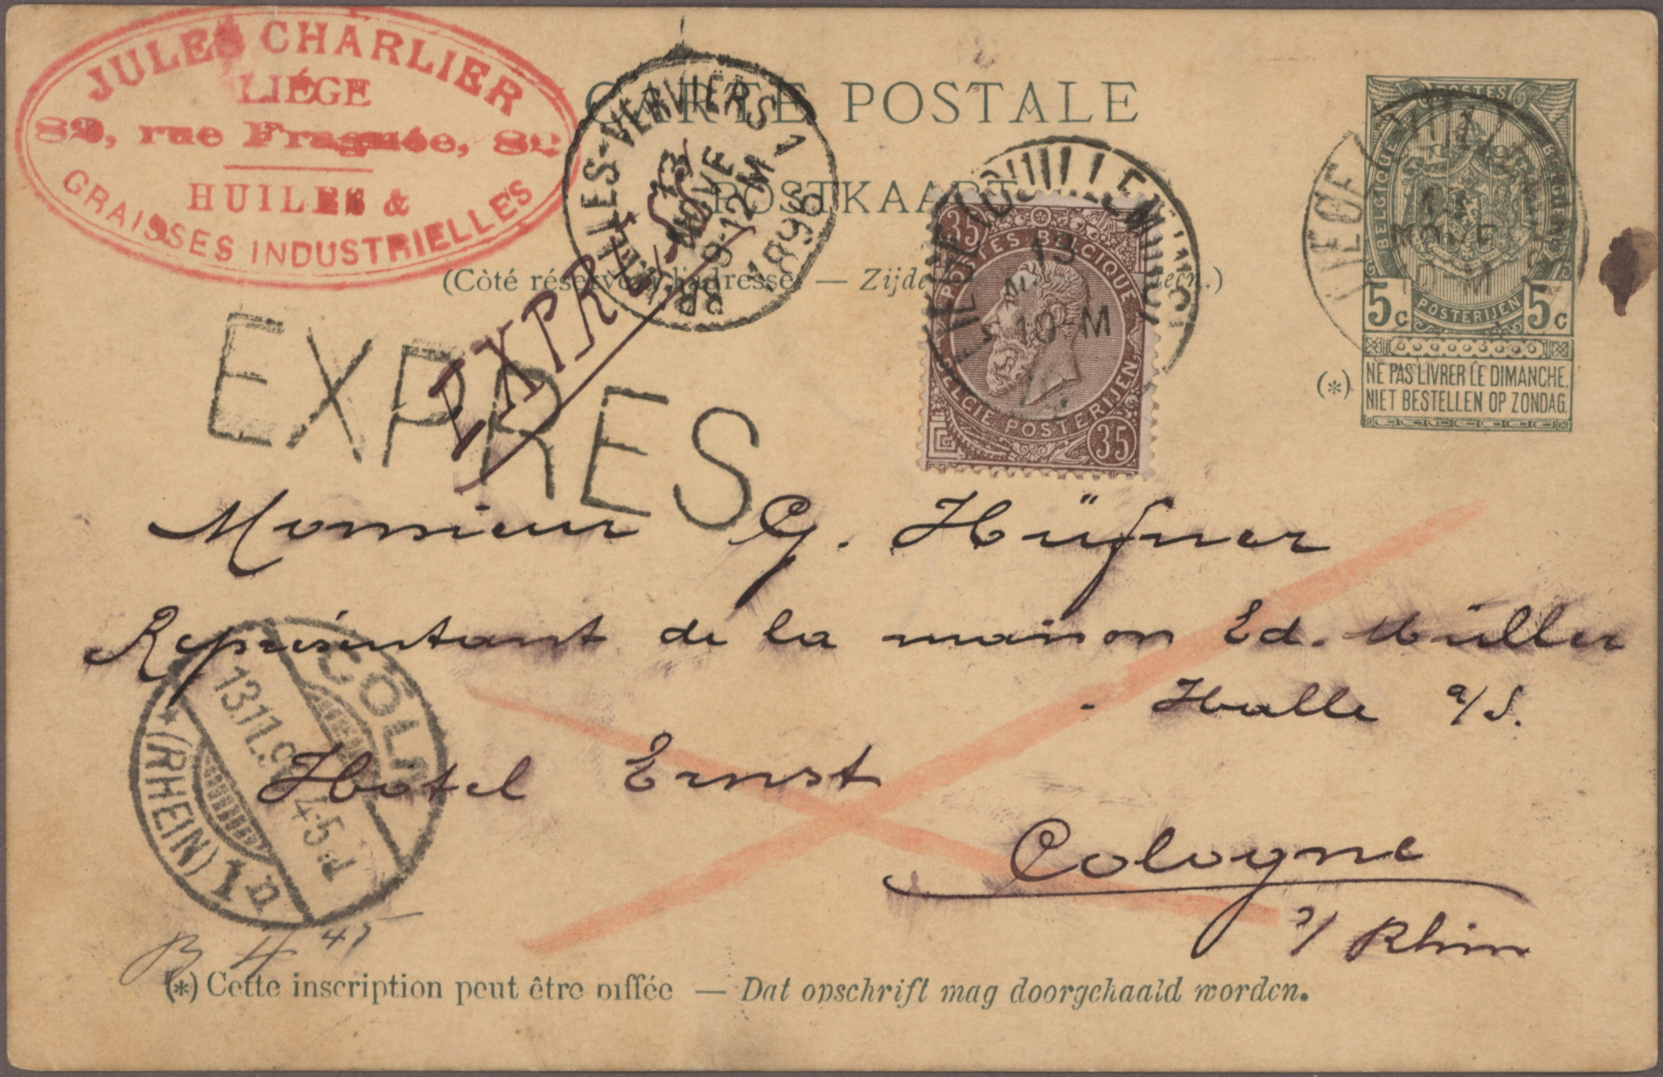 JULES CHARLIER
LIÉGE
82, rue Fragnée, 82
HUILES &
GRAISSES INDUSTRIELLES
CARTE POSTALE
POSTKAART
(Côté réservé à l'adresse. — Zijde
VERVIERS 1
13
NOVE
9-12 M
1896
EXPRES
EXPRES
35
POSTES BELGIQUE
13
10-M
BELGIE POSTERIJEN
35
POSTES
BELGIQUE
BELGIE
LIEGE
NOVE
M
5c POSTERIJEN 5c
(*) NE PAS LIVRER LE DIMANCHE.
NIET BESTELLEN OP ZONDAG.
Monsieur G. Hüfner
Représentant de la maison Ed. Müller
Halle a/S.
Hotel Ernst
Cologne
s/ Rhin
CÖLN
13.11.9
4-5N
* (RHEIN) 1
4 45
(*) Cette inscription peut être biffée — Dat opschrift mag doorgehaald worden.